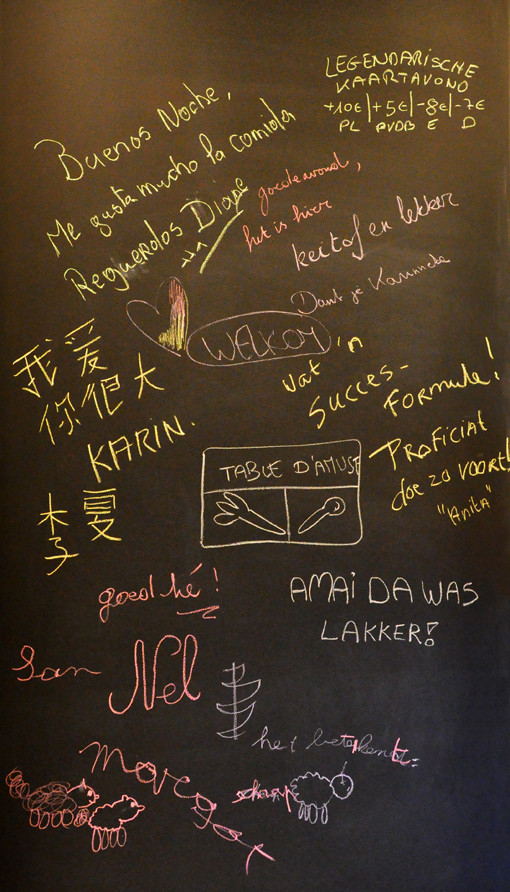 LEGENDARISCHE
KAARTAVOND
+10€|+5€|-8€|-7€
PL PVDB E D
Buenos Noche,
Me gusta mucho la comida
Reguerdos Diane
goede avond,
het is hier
keitof en lekker
Dank je Kanineke
WELKOM
我爱
你很大
KARIN.
木子夏
wat 'n
Succes-
FORMULE!
PROFICIAT
doe zo voort!
"Anita"
TABLE D'AMUSE
goed hé!
AMAI DA WAS
LAKKER!
San Nel
het betekent:
schaap